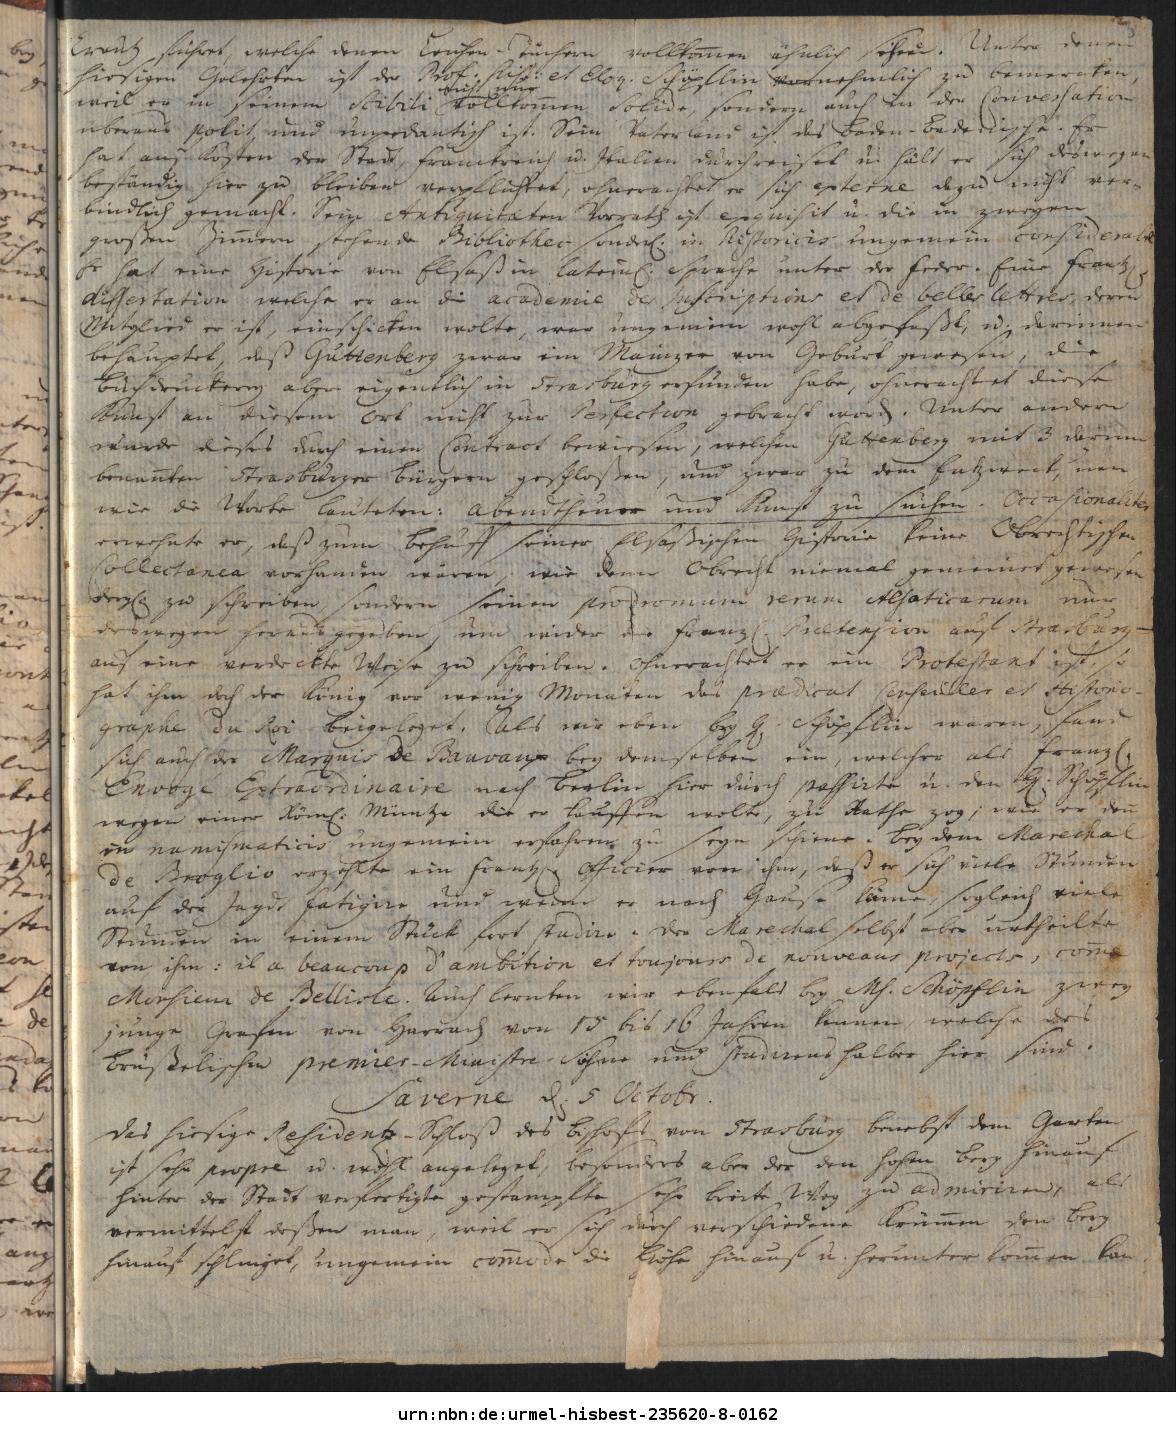 Creutz führet, welche denen Leichen-Tüchern vollkom̄en ähnlich sehen. Unter denen
hiesigen Gelehrten ist der Prof. Hist: et Eloq. Schöpflin vornehmlich zu bemercken,
weil er in seinem Scibili nicht nur vollkom̄en solide, sondern auch in der Conversation
überaus polit und unpedantisch ist. Sein Vaterland ist das Baden-Badenische. Er
hat auf Kosten der Stadt Franckreich u. Italien durchreiset u. hält er sich deswegen
beständig hier zu bleiben verpflichtet, ohnerachtet er sich externe dazu nicht ver-
bindlich gemacht. Sein Antiquitaeten Vorrath ist exquisit u. die in zweyen
großen Zim̄ern stehende Bibliothec sonderl. in Historicis ungemein considerabel
Er hat eine Historie von Elsaß in lateinl. Sprache unter der Feder. Eine Frantzl.
dissertation welche er an die academie des Inscriptions et de belles lettres, deren
Mitglied er ist, einschicken wolte, war ungemein wohl abgefaßt, u. darinnen
behauptet, daß Guttenberg zwar ein Mainzer von Geburt gewesen, die
Buchdruckerey aber eigentlich in Strasburg erfunden habe, ohnerachtet diese
Kunst an diesem Ort nicht zur Perfection gebracht word. Unter andern
wurde dieses durch einen Contract bewiesen, welchen Guttenberg mit 3 darinn
benan̄ten Strasburger Bürgern geschloßen, und zwar zu dem Entzweck, um
wie die Worte lauteten: Abendtheuer und Kunst zu suchen. Occasionaliter
erwehnte er, daß zum Behuff seiner Elsaßischen Historie keine Obrechtischen
Collectanea vorhanden wären, wie denn Obrecht niemal gemeinet gewesen
dergl. zu schreiben, sondern seinen prodromum rerum Alsaticarum nur
deswegen herausgegeben, um wider die Franzl. Praetension auf Strasburg
auf eine verdeckte Weise zu schreiben. Ohnerachtet er ein Protestant ist, so
hat ihm doch der König vor wenig Monaten das praedicat Conseiller et Historio-
graphe du Roi beigeleget. Als wir eben bey H. Schöpflin waren, fand
sich auch der Marquis de Bauvaux bey demselben ein, welcher als Franzl.
Envoyé Extraordinaire nach Berlin hier durch passirte u. den H. Schöpflin
wegen einer Röml. Müntze die er kauffen wolte, zu Rathe zog; wie er den̄
in numismaticis ungemein erfahren zu seyn schiene. Bey dem Marechal
de Broglio erzehlte ein Frantz. Officier von ihm, daß er sich viele Stunden
auf der Jagd fatigire und wenn er nach Hause käme, sogleich viele
Stunden in einem Stück fort studire. Der Marechal selbst aber urtheilte
von ihm: il a beaucoup d'ambition et toujours de nouveaus projects, com̄e
Monsieur de Bellisle. Auch lernten wir ebenfals bey Ms. Schöpflin zwey
junge Grafen von Harrach von 15 bis 16 Jahren kennen, welche des
Brüßelischen premier-Ministre Söhne und studirens halber hier sind.
Saverne d. 5 Octobr.
Das hiesige Residentz-Schloß des Bischofs von Strasburg benebst dem Garten
ist sehr propre u. wohl angeleget, besonders aber der den hohen Berg hinauf
hinter der Stadt verfertigte gestampfte sehr breite Weg zu admiriren, als
vermittelst deßen man, weil er sich durch verschiedene Krüm̄en den Berg
hinauf schlinget, ungemein com̄ode die Höhe hinauf u. herunter kom̄en kan.
urn:nbn:de:urmel-hisbest-235620-8-0162